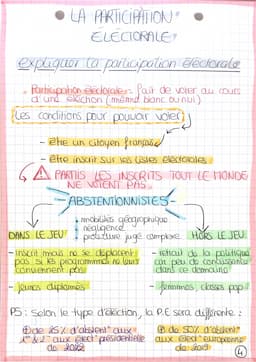 LA PARTICIPATION
ÉLECTORALE
expliquer la participation électorale
Participation électorale : fait de voter au cours
d'une élection (même blanc ou nul)
Les conditions pour pouvoir voter
- être un citoyen français
- être inscrit sur les listes électorales
PARMIS LES INSCRITS TOUT LE MONDE
NE VOTENT PAS
- ABSTENTIONNISTES -
: mobilités géographique
négligence
procédure jugé complexe
DANS LE JEU
HORS LE JEU
- inscrit mais ne se déplacent
pas si les programmes ne leurs
conviennent pas
- retrait de la politique
car peu de connaissance
dans ce domaine
- jeunes diplômés
- femmes, classes pop
PS : Selon le type d'élection, la P.E sera différente :
⊕ de 25% d'absent° aux
1er & 2e aux élect° présidentielle
de 2022
⊕ de 50% d'absent°
aux élect° européenne
de 2019
4